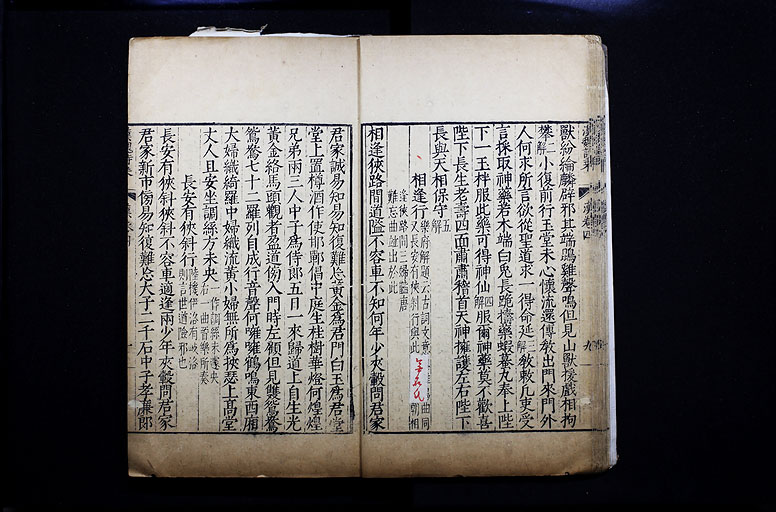 獸紛綸麟辟邪其端鵾雞聲鳴但見山獸援戲相拘
攀二解小復前行玉堂未心懷流還傳教出門來門外
人何求所言欲從聖道求一得命延三解教敕凡吏受
言採取神藥若木端白兔長跪擣藥蝦蟇丸奉上陛
下一玉柈服此藥可得神仙四解服爾神藥莫不歡喜
陛下長生老壽四面肅肅稽首天神擁護左右陛下
長與天相保守五解
相逢行
樂府解題云古詞文意
曲同
又長安有狹斜行與此
相
逢狹路間三婦豔唐
難忘曲並出於此
相逢狹路間道隘不容車不知何年少夾轂問君家
君家誠易知易知復難忘黃金為君門白玉為君堂
堂上置樽酒作使邯鄲倡中庭生桂樹華燈何煌煌
兄弟兩三人中子為侍郎五日一來歸道上自生光
黃金絡馬頭觀者盈道傍入門時左顧但見雙鴛鴦
鴛鴦七十二羅列自成行音聲何噰噰鶴鳴東西廂
大婦織綺羅中婦織流黃小婦無所為挾瑟上高堂
丈人且安坐調絲方未央
一作調絲未遽央
右一曲晉樂所奏
長安有狹斜行
陸機伊洛有歧路
則言世道險邪也
長安有狹斜狹斜不容車適逢兩少年夾轂問君家
君家新市傍易知復難忘大子二千石中子孝廉郎